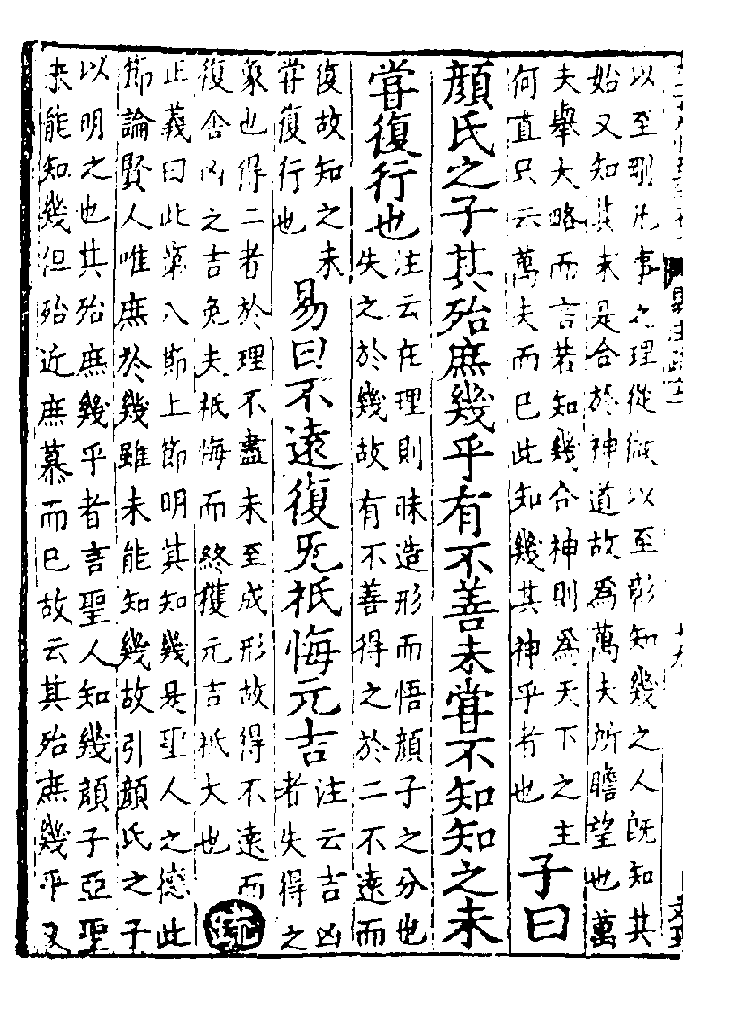 以至剛凡事之理從微以至彰知幾之人既知其
始又知其末是合於神道故爲萬夫所瞻望也萬
夫舉大略而言若知幾合神則爲天下之主
何直只云萬夫而巳此知幾其神乎者也
子曰
顔氏之子其殆庶幾乎有不善未甞不知知之未
甞復行也
注云在理則昧造形而悟顔子之分也
失之於幾故有不善得之於二不遠而
復故知之未
甞復行也
易曰不遠復无祇悔元吉
注云吉凶
者失得之
象也得二者於理不盡未至成形故得不遠而
復舍凶之吉免夫祇悔而終獲元吉祇大也
疏
正義曰此第八節上節明其知幾是聖人之德此
節論賢人唯庶於幾雖未能知幾故引顔氏之子
以明之也其殆庶幾乎者言聖人知幾顔子亞聖
未能知幾但殆近庶慕而巳故云其殆庶幾乎又